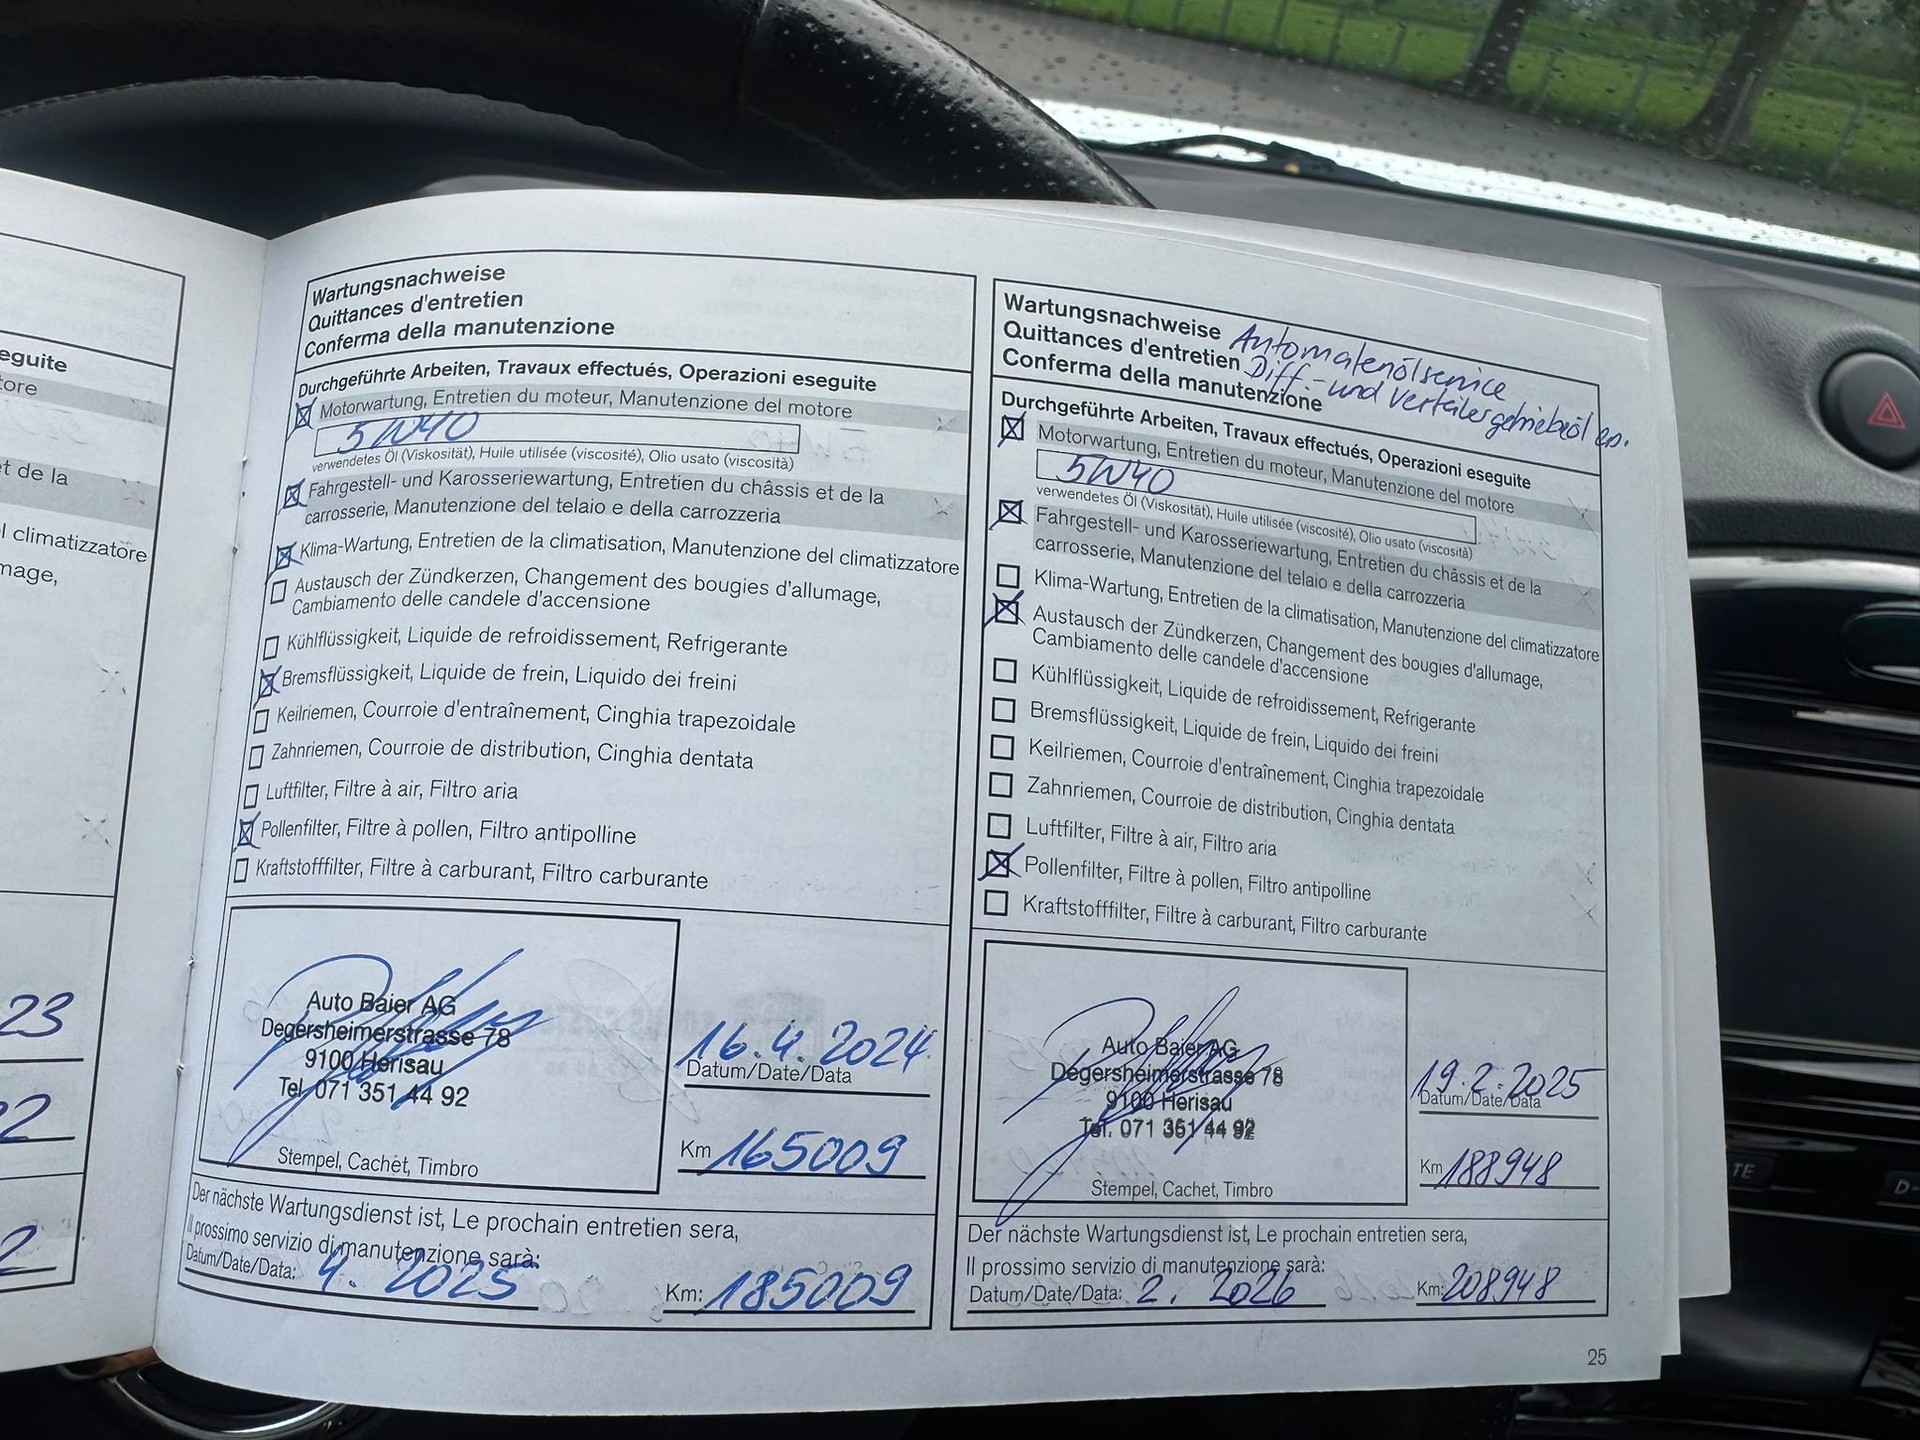 eguite
tore
et de la
l climatizzatore
mage,
23
2
2
Wartungsnachweise
Quittances d'entretien
Conferma della manutenzione
Durchgeführte Arbeiten, Travaux effectués, Operazioni eseguite
Motorwartung, Entretien du moteur, Manutenzione del motore
5W40
verwendetes Öl (Viskosität), Huile utilisée (viscosité), Olio usato (viscosità)
Fahrgestell- und Karosseriewartung, Entretien du châssis et de la
carrosserie, Manutenzione del telaio e della carrozzeria
Klima-Wartung, Entretien de la climatisation, Manutenzione del climatizzatore
Austausch der Zündkerzen, Changement des bougies d'allumage,
Cambiamento delle candele d'accensione
Kühlflüssigkeit, Liquide de refroidissement, Refrigerante
Bremsflüssigkeit, Liquide de frein, Liquido dei freini
Keilriemen, Courroie d'entraînement, Cinghia trapezoidale
Zahnriemen, Courroie de distribution, Cinghia dentata
Luftfilter, Filtre à air, Filtro aria
Pollenfilter, Filtre à pollen, Filtro antipolline
Kraftstofffilter, Filtre à carburant, Filtro carburante
Auto Baier AG
Degersheimerstrasse 78
9100 Herisau
Tel. 071 351 44 92
Stempel, Cachet, Timbro
16.4.2024
Datum/Date/Data
Km 165009
Der nächste Wartungsdienst ist, Le prochain entretien sera,
Il prossimo servizio di manutenzione sarà:
Datum/Date/Data: 4. 2025 Km: 185009
Wartungsnachweise Automatenölservice
Quittances d'entretien Diff.- und Verteilergetriebeöl
Conferma della manutenzione
Durchgeführte Arbeiten, Travaux effectués, Operazioni eseguite
Motorwartung, Entretien du moteur, Manutenzione del motore
5W40
verwendetes Öl (Viskosität), Huile utilisée (viscosité), Olio usato (viscosità)
Fahrgestell- und Karosseriewartung, Entretien du châssis et de la
carrosserie, Manutenzione del telaio e della carrozzeria
Klima-Wartung, Entretien de la climatisation, Manutenzione del climatizzatore
Austausch der Zündkerzen, Changement des bougies d'allumage,
Cambiamento delle candele d'accensione
Kühlflüssigkeit, Liquide de refroidissement, Refrigerante
Bremsflüssigkeit, Liquide de frein, Liquido dei freini
Keilriemen, Courroie d'entraînement, Cinghia trapezoidale
Zahnriemen, Courroie de distribution, Cinghia dentata
Luftfilter, Filtre à air, Filtro aria
Pollenfilter, Filtre à pollen, Filtro antipolline
Kraftstofffilter, Filtre à carburant, Filtro carburante
Auto Baier AG
Degersheimerstrasse 78
9100 Herisau
Tel. 071 351 44 92
Stempel, Cachet, Timbro
19.2.2025
Datum/Date/Data
Km 188948
Der nächste Wartungsdienst ist, Le prochain entretien sera,
Il prossimo servizio di manutenzione sarà:
Datum/Date/Data: 2. 2026 Km: 208948
25
TE
D-